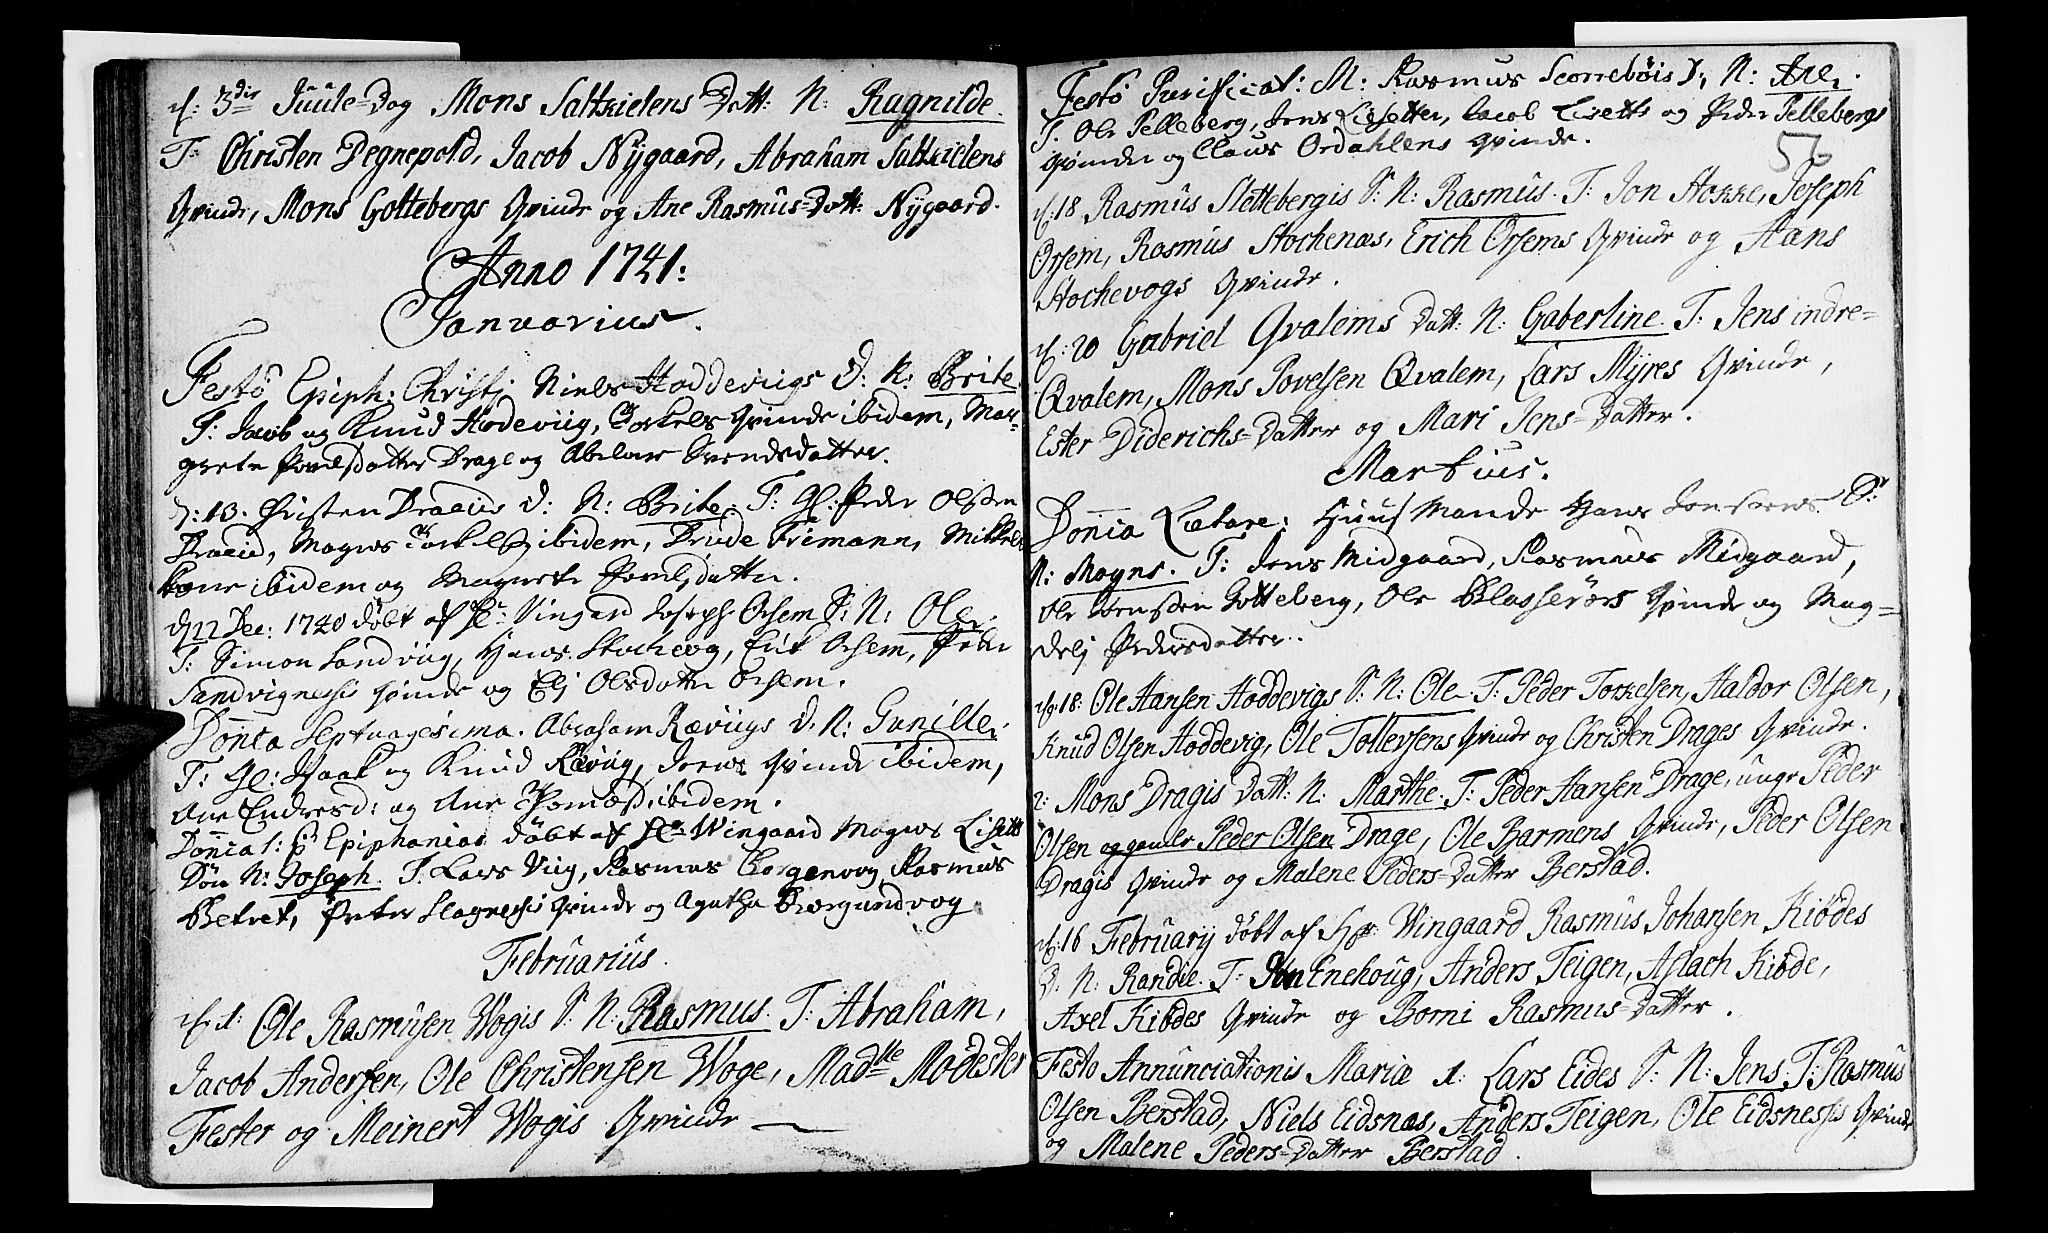 d: 3die Juule-Dag Mons Saltkielens Datt: N: Ragnilde.
T: Christen Degnepold, Jacob Nÿgaard, Abraham Saltkielens
Qvinde, Mons Gottebergs Qvinde og Ane Rasmus-Datt: Nÿgaard.
Anno 1741:
Januarius.
Festo Epiph: Christj Niels Hoddeviigs D: N: Brite.
T: Jacob og Knud Hodeviig, Torkels Qvinde ibidem, Mar-
grete Povelsdatter Drage og Abelone Svendsdatter.
d: 13. Christen Draeiis D: N: Brite. T: Gl: Peder Olsen
Draeid, Magns Torkels ibidem, Drude Frimann, Mikkels
kone ibidem og Margrete Povelsdatter.
d 22 Dec: 1740 döbt af Hr Vingard Joseph Orsem S: N: Ole.
T: Simon Sandviig, Hans Stochevog, Erik Orsem, Peder
Sandvignessis Qvinde og Elj Olsdatter Orsem.
Domca Septuagesima. Abraham Ræviigs D. N: Gunille.
T: Gl: Isaak og Knud Ræviig, Jonns Qvinde ibidem,
Ane Endresd: og Ane Thomæd: ibidem.
Domca 1: p Epiphanias döbt af Hr Wingaard Magns Lisetts
Sön N: Joseph. T. Lars Viig, Rasmus Borgenvog, Rasmus
Betret, Peter Slagnessis Qvinde og Agatha Borgundvog
Februarius.
d. 1: Ole Rasmusen Wogis S: N: Rasmus. T: Abraham,
Jacob Andersen, Ole Christensen Woge, Madlle Modester
Fester og Meinert Wogis Qvinde
Festo Purificat: M: Rasmus Scorrebóis D: N: Ane.
T. Ole Pelleberg, Jens Lisetter, Jacob Lisett og Peder Pellebergs
Qvinder og Claus Ordahlens Qvinde.
56
d: 18 Rasmus Slettebergis S: N: Rasmus. T: Jon Hokke, Joseph
Orsem, Rasmus Stochenæs, Erich Orsems Qvinde og Hans
Stochevogs Qvinde.
d: 20 Gabriel Qvalems Datt: N: Gaberline. T: Jens indre-
Qvalem, Mons Povelsen Qvalem, Lars Mÿres Qvinde,
Ester Diderichs-Datter og Mari Jens-Datter.
Martius.
Domca Lætare: Huus Mands Hans Jonsens S:
N: Magns. T: Jens Midgaard, Rasmus Midgaard,
Ole Jensen Gotteberg, Ole Blasserörs Qvinde og Mag-
delj Pedersdatter.
d: 18: Ole Hansen Hoddevigs S: N: Ole T: Peder Torkelsen, Haldor Olsen,
Knud Olsen Hoddevig, Ole Tollevsens Qvinde og Christen Drages Qvinde.
2: Mons Dragis Datt: N: Marthe. T: Peder Hansen Drage, unge Peder
Olsen og gamle Peder Olsen Drage, Ole Barmens Qvinde, Peder Olsen
Dragis Qvinde og Malene Peders-Datter Berstad.
d: 16 Februarij döbt af Hr: Wingaard Rasmus Johansen Kiödes
D. N: Randie. T: Jon Enehoug, Anders Teigen, Aslach Kiöde,
Axel Kiödes Qvinde og Borni Rasmus-Datter.
Festo Annunciationis Mariæ d: Lars Eides S: N: Jens. T: Rasmus
Olsen Berstad, Niels Eidsnæs, Anders Teigen, Ole Eidsnessis Qvinde
og Malene Peders-Datter Berstad.